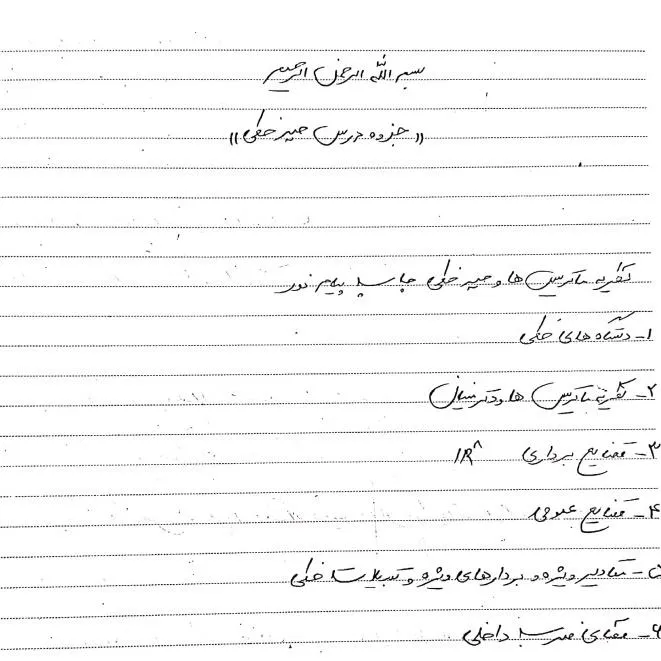 بسم الله الرحمن الرحیم
(( جزوه درس جبر خطی ))
نظریه ماتریس ها و جبر خطی چاپ پیام نور
۱- دستگاه های خطی
۲- نظریه ماتریس ها و دترمینال
۳- فضای برداری IR^n
۴- فضای عمومی
۵- مقادیر ویژه و بردارهای ویژه و تبدیلات خطی
۶- فضای ضرب داخلی